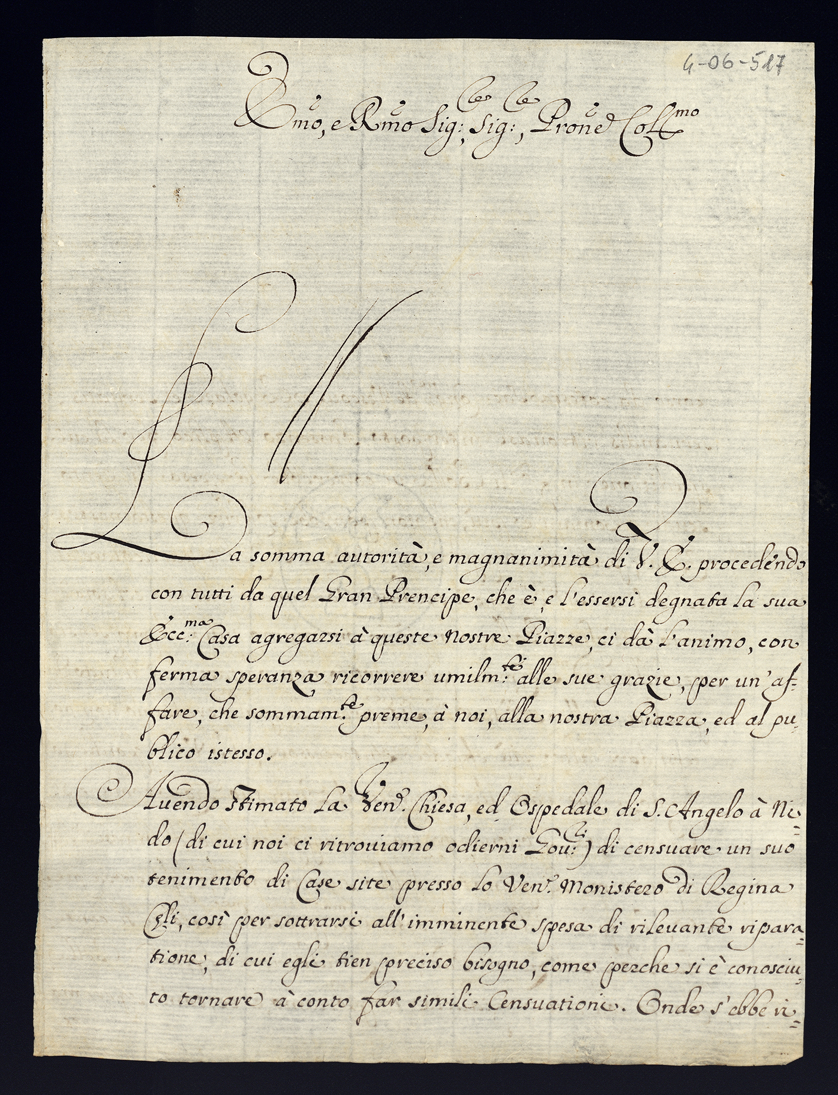 4-06-517
Emo, e Rmo Sig:re, Sig:re, Prone Coll.mo
La somma autorità, e magnanimità di V. E. procedendo
con tutti da quel Gran Prencipe, che è, e l'essersi degnata la sua
Ecc:ma Casa agregarsi à queste nostre Piazze, ci dà l'animo, con
ferma speranza ricorrere umilm:te alle sue grazie, per un' af=
fare, che sommam:te preme, à noi, alla nostra Piazza, ed al pu=
blico istesso.
Avendo stimato la Ven. Chiesa, ed Ospedale di S. Angelo à Ni=
do (di cui noi ci ritroviamo odierni Gov:ri) di censuare un suo
tenimento di Case site presso lo Ven. Monistero di Regina
Celi, così per sottrarsi all'imminente spesa di rilevante ripara=
tione, di cui egli tien preciso bisogno, come perche si è conosciu=
to tornare à conto fàr simili Censuationi. Onde s'ebbe ri=